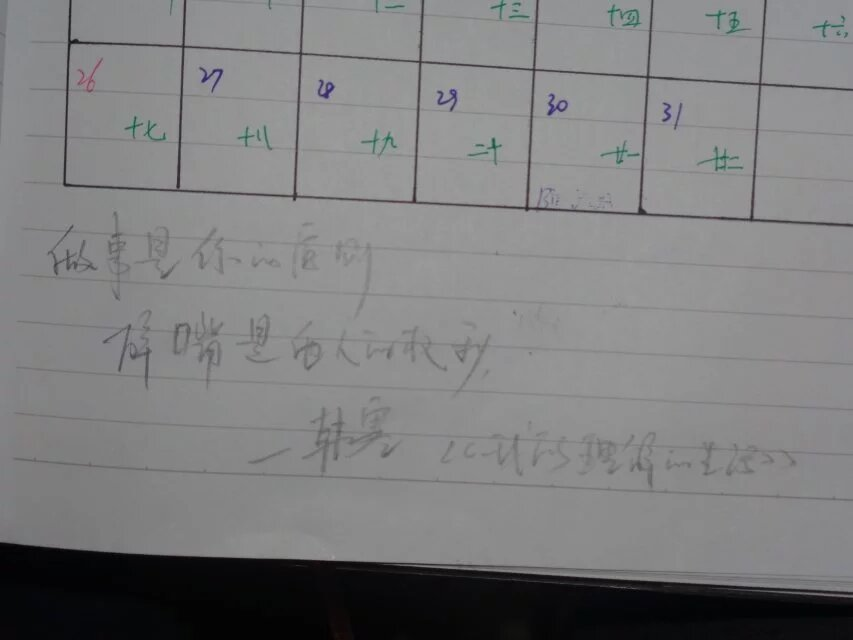 十三 十四 十五 十六
26 27 28 29 30 31
十七 十八 十九 二十 廿一 廿二
做事是你的原则
碎嘴是人的权利
—韩寒《我所理解的生活》